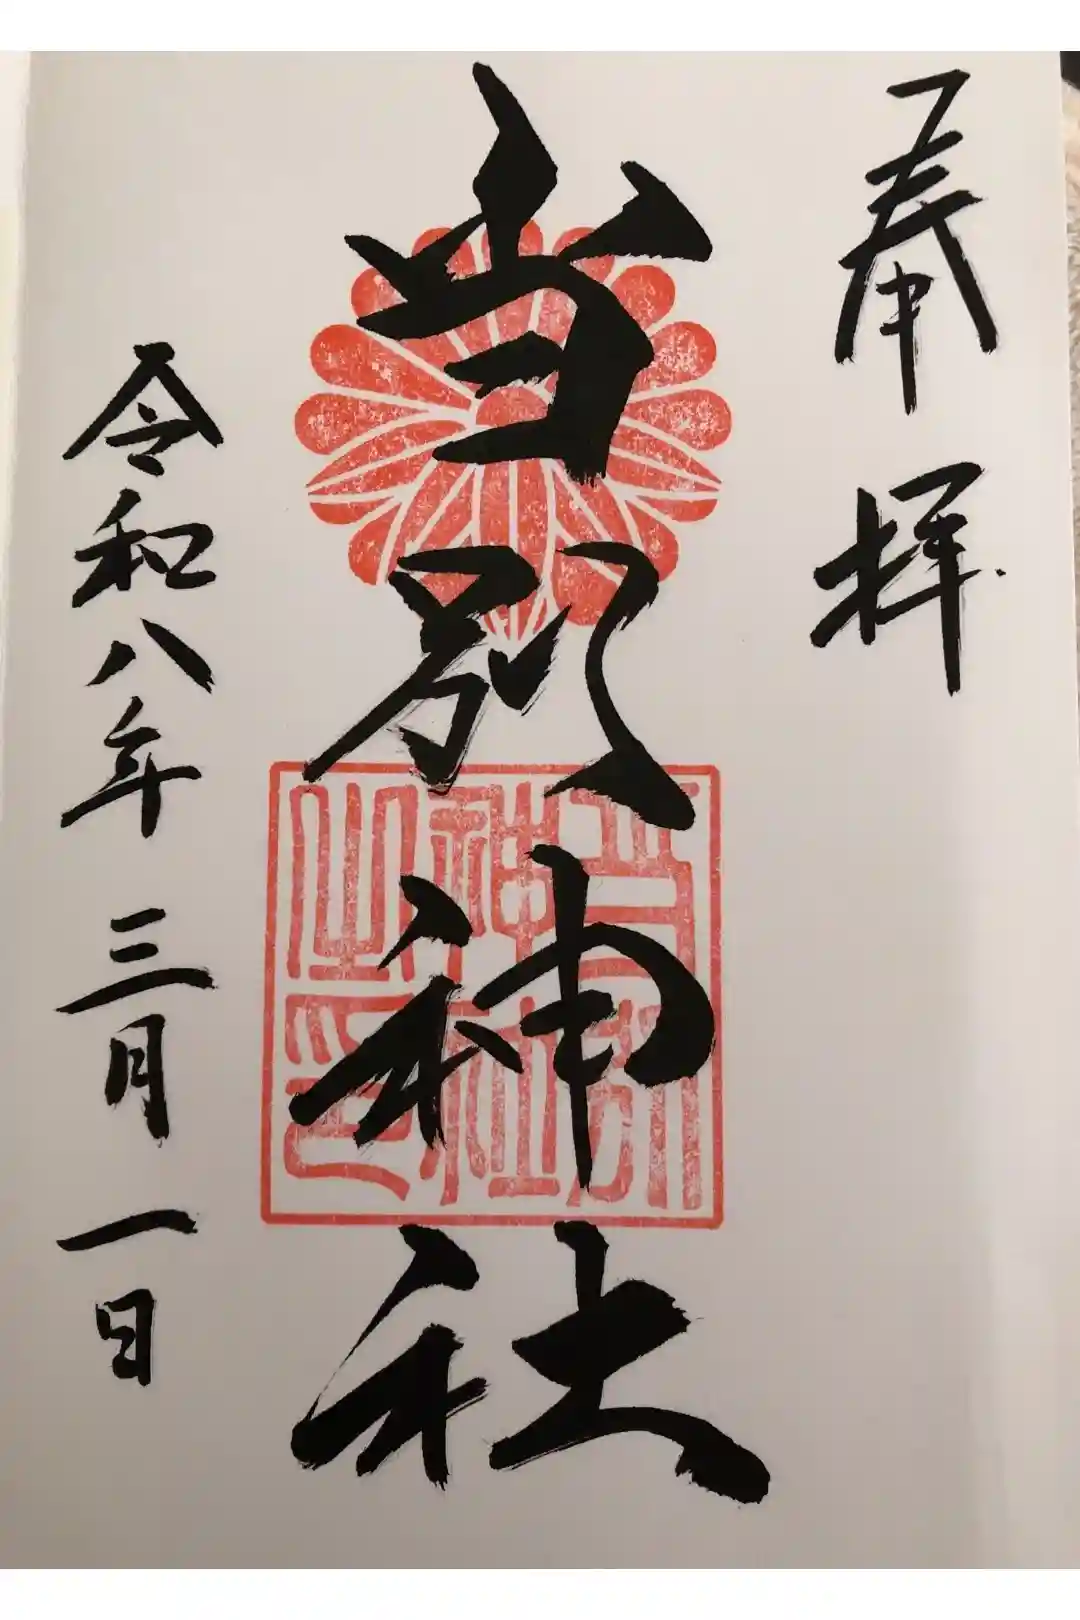 奉拝
当別神社
当別神社之印
令和八年三月一日